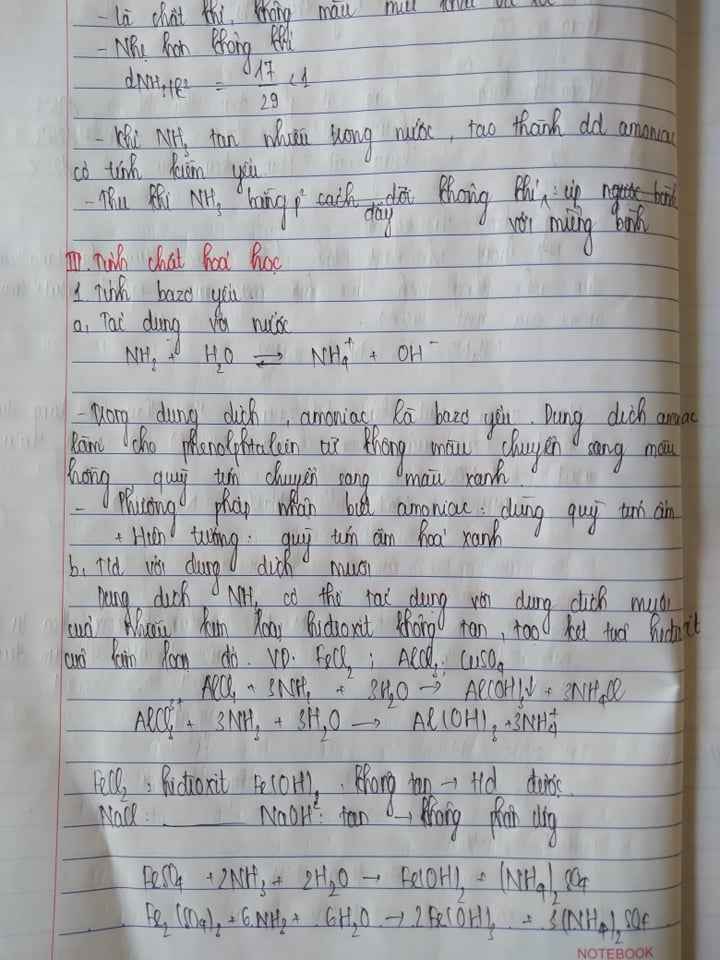 - Là chất khí, không màu mùi khai và xốc
- Nhẹ hơn không khí
dNH3/kk = 17/29 < 1
- Khí NH3 tan nhiều trong nước, tạo thành dd amoniac
có tính kiềm yếu
- Thu khí NH3 bằng p² cách đẩy dời không khí, úp ngược bình
với miệng bình
III. Tính chất hoá học
1. Tính bazơ yếu
a, Tác dụng với nước
NH3 + H2O ⇌ NH4+ + OH-
- Trong dung dịch, amoniac là bazơ yếu. Dung dịch amoniac
làm cho phenolphtalein từ không màu chuyển sang màu
hồng quỳ tím chuyển sang màu xanh.
- Phương pháp nhận biết amoniac: dùng quỳ tím ẩm
+ Hiện tượng: quỳ tím ẩm hoá xanh
b, T/d với dung dịch muối
Dung dịch NH3 có thể tác dụng với dung dịch muối
của nhiều kim loại hidroxit không tan, tạo kết tủa hidroxit
của kim loại đó. VD: FeCl2; AlCl3; CuSO4
AlCl3 + 3NH3 + 3H2O → Al(OH)3↓ + 3NH4Cl
AlCl3 3+ + 3NH3 + 3H2O → Al(OH)3 + 3NH4+
FeCl2 : hidroxit Fe(OH)2 không tan → t/d được.
NaCl: ______ NaOH: tan → không phản ứng
FeSO4 + 2NH3 + 2H2O → Fe(OH)2 + (NH4)2SO4
Fe2(SO4)3 + 6NH3 + 6H2O → 2Fe(OH)3 + 3(NH4)2SO4
NOTEBOOK